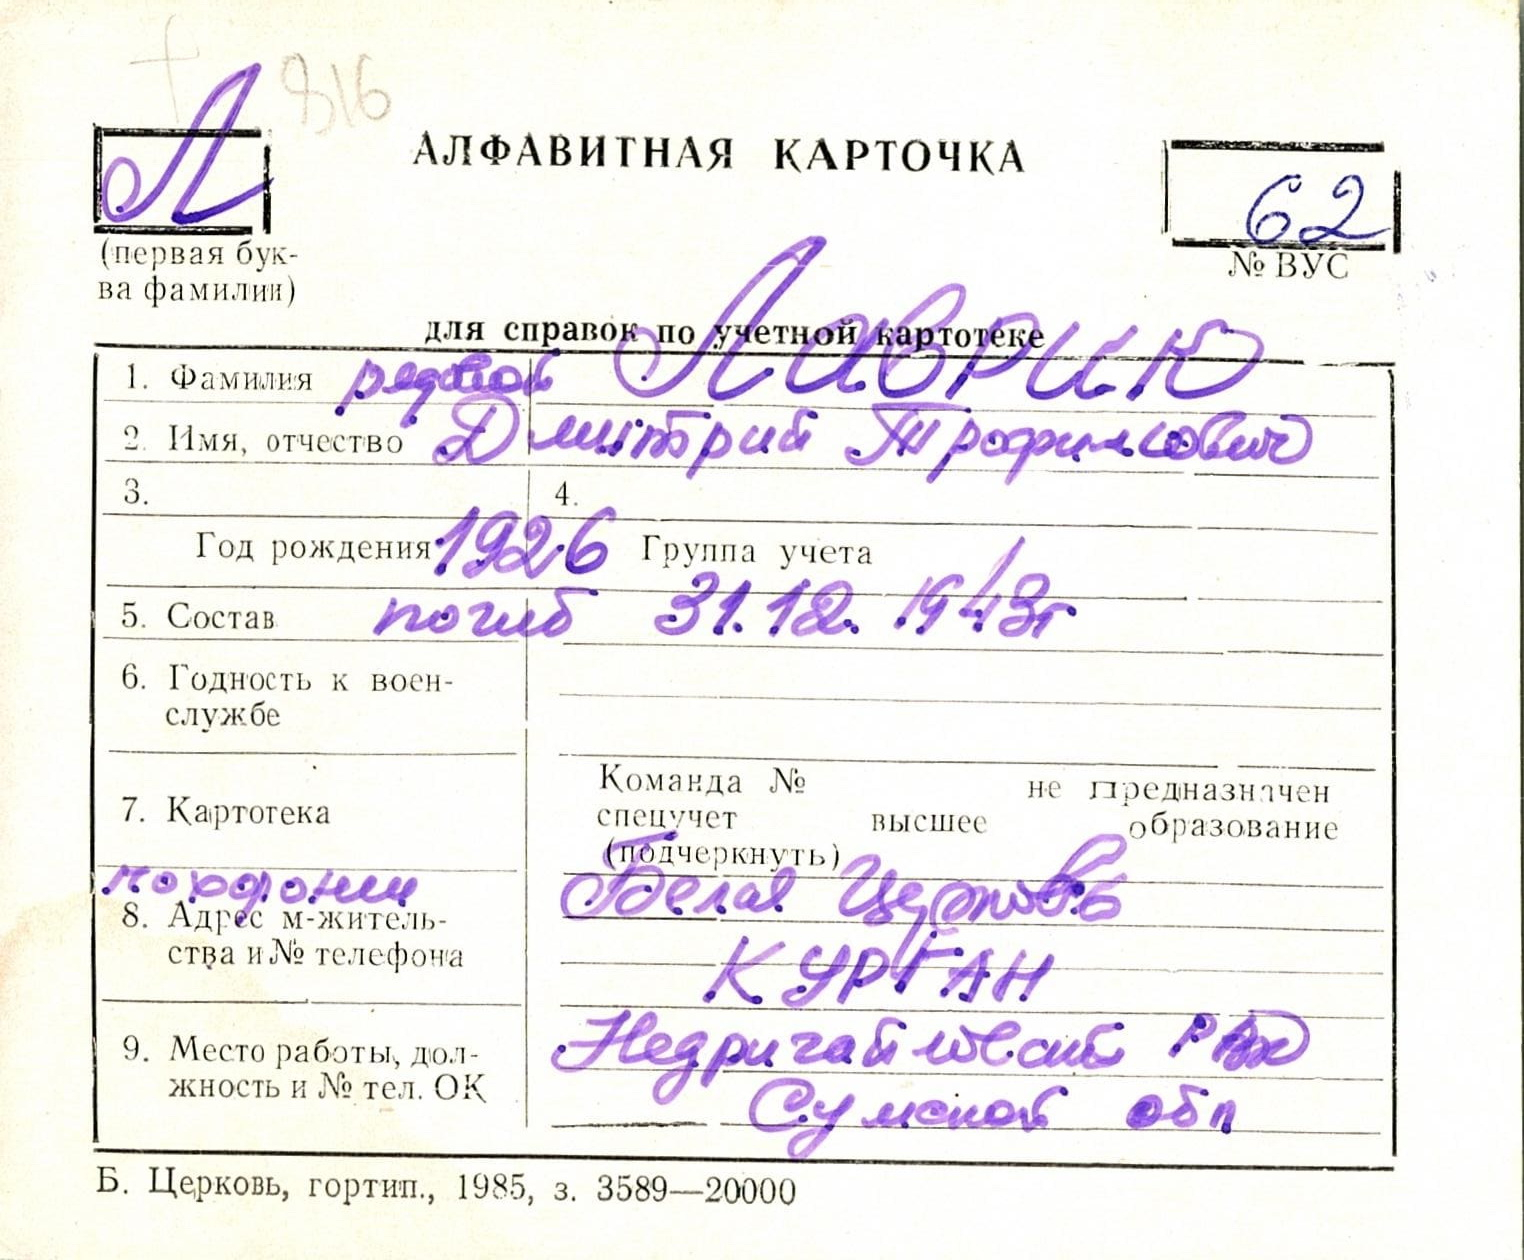 816
Л
АЛФАВИТНАЯ КАРТОЧКА
62
(первая бук-
ва фамилии)
№ ВУС
для справок по учетной картотеке
1. Фамилия рядовой Лаврик
2. Имя, отчество Дмитрий Трофимович
3. 4.
Год рождения 1926 Группа учета
5. Состав погиб 31.12. 1943г
6. Годность к воен-
службе
7. Картотека
Команда № не предназначен
спецучет высшее образование
(подчеркнуть)
похоронен Белая Церковь
8. Адрес м-житель-
ства и № телефона
КУРГАН
9. Место работы, дол-
жность и № тел. ОК
Недригайловский РВК
Сумской обл
Б. Церковь, гортип., 1985, з. 3589—20000